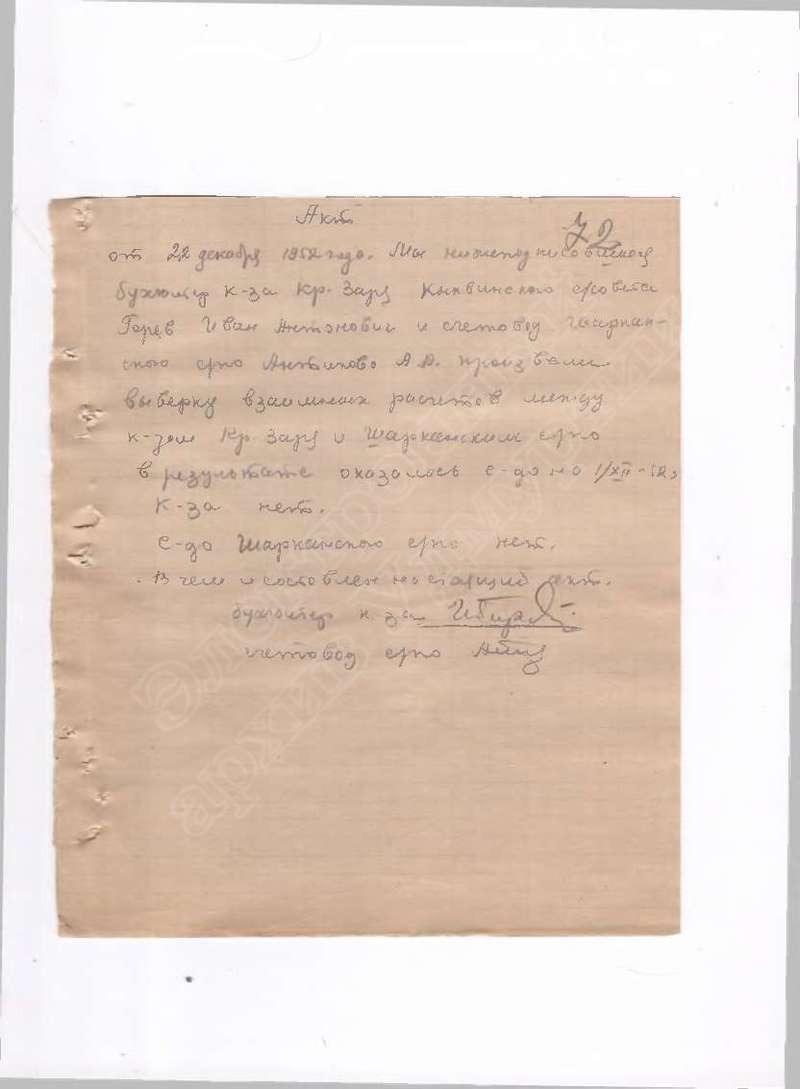 Акт
72
от 22 декабря 1952 года. Мы нижеподписавшиеся
бухгалтер к-за Кр-Заря Кыквинского с/совета
Горев Иван Антонович и счетовод Шаркан-
ского српо Антипова А.А. произвели
выверку взаимных расчетов между
к-зом Кр. Заря и Шарканским српо
в результате оказалось с-до на 1/XII-52г
К-за нет.
С-до Шарканского српо нет.
В чем и составлен настоящий акт.
бухгалтер к-за
счетовод српо
Электронный
архив